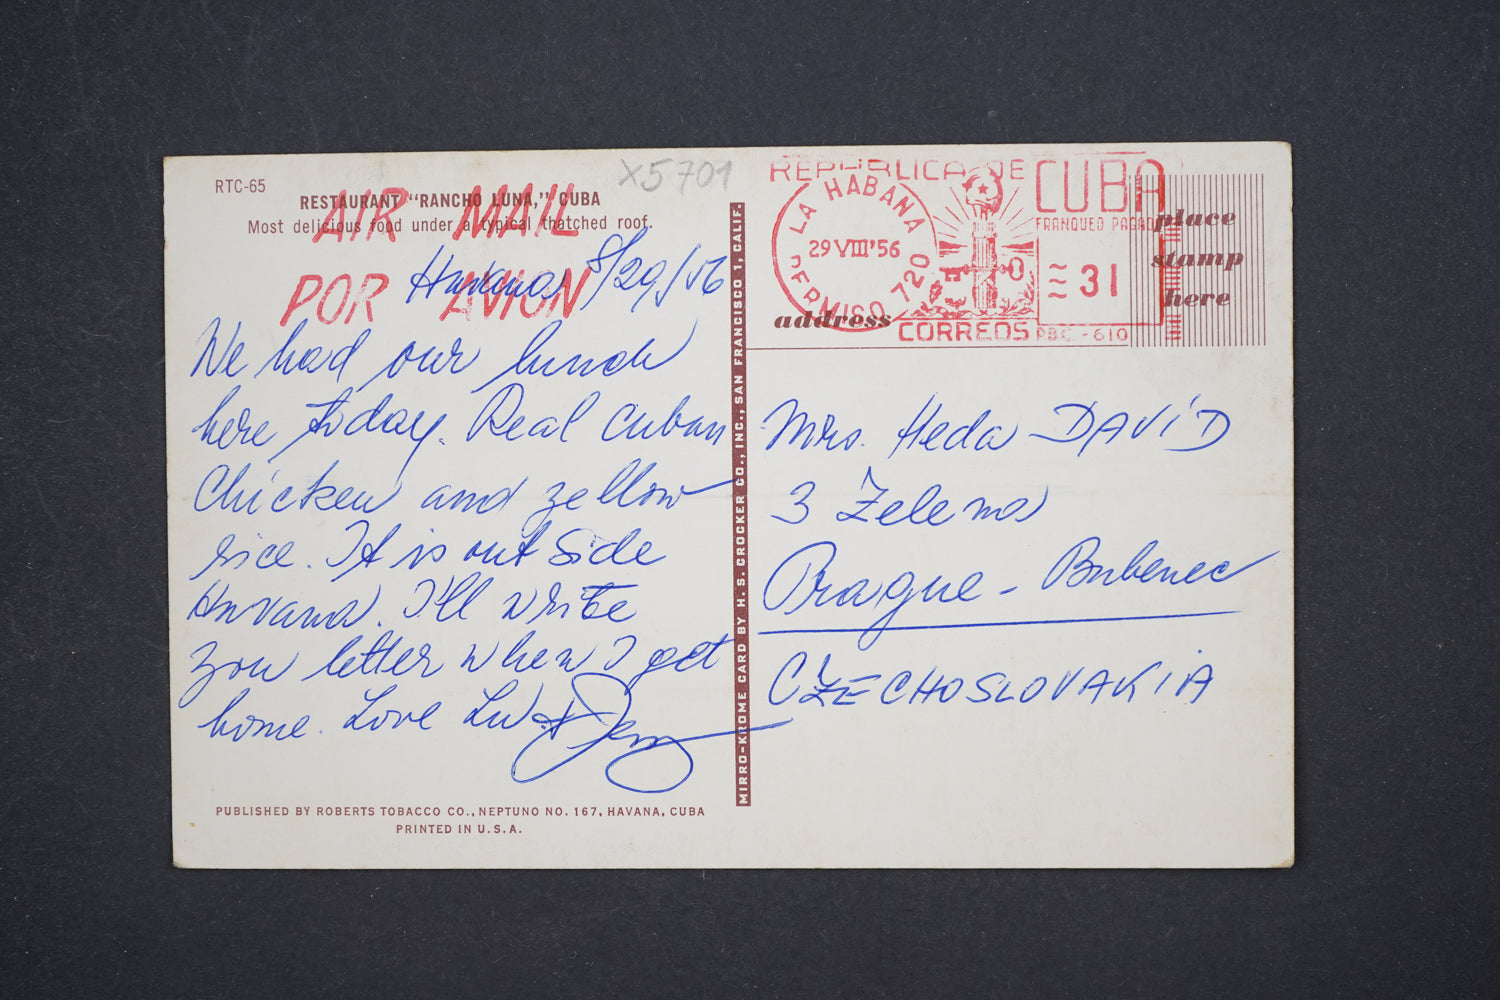 RTC-65
X5701
RESTAURANT "RANCHO LUNA," CUBA
Most delicious food under a typical thatched roof.
AIR MAIL
POR AVION
Havana, 8/29/56
We had our lunch
here today. Real Cuban
Chicken and yellow
rice. It is out side
Havana. I'll write
you letter when I get
home. Love
PUBLISHED BY ROBERTS TOBACCO CO., NEPTUNO NO. 167, HAVANA, CUBA
PRINTED IN U.S.A.
MIRRO-KROME CARD BY H. S. CROCKER CO., INC., SAN FRANCISCO 1, CALIF.
REPUBLICA DE CUBA
LA HABANA
29 VIII '56
PERMISO 720
CORREOS
FRANQUEO PAGADO
31
P.B.C. - 610
place
stamp
here
address
Mrs. Heda DAVÍD
3 Zelena
Prague - Bubenec
CZECHOSLOVAKIA